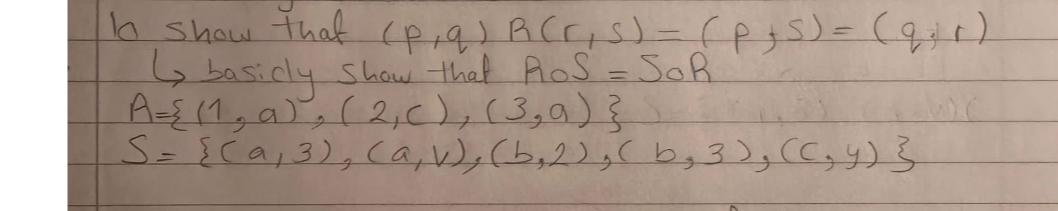 b show that (p,q) R(r,s) = (p,s) = (q,r)
↳ basicly show that RoS = SoR
R={(1,a),(2,c),(3,a)}
S= {(a,3),(a,v),(b,2),(b,3),(c,y)}